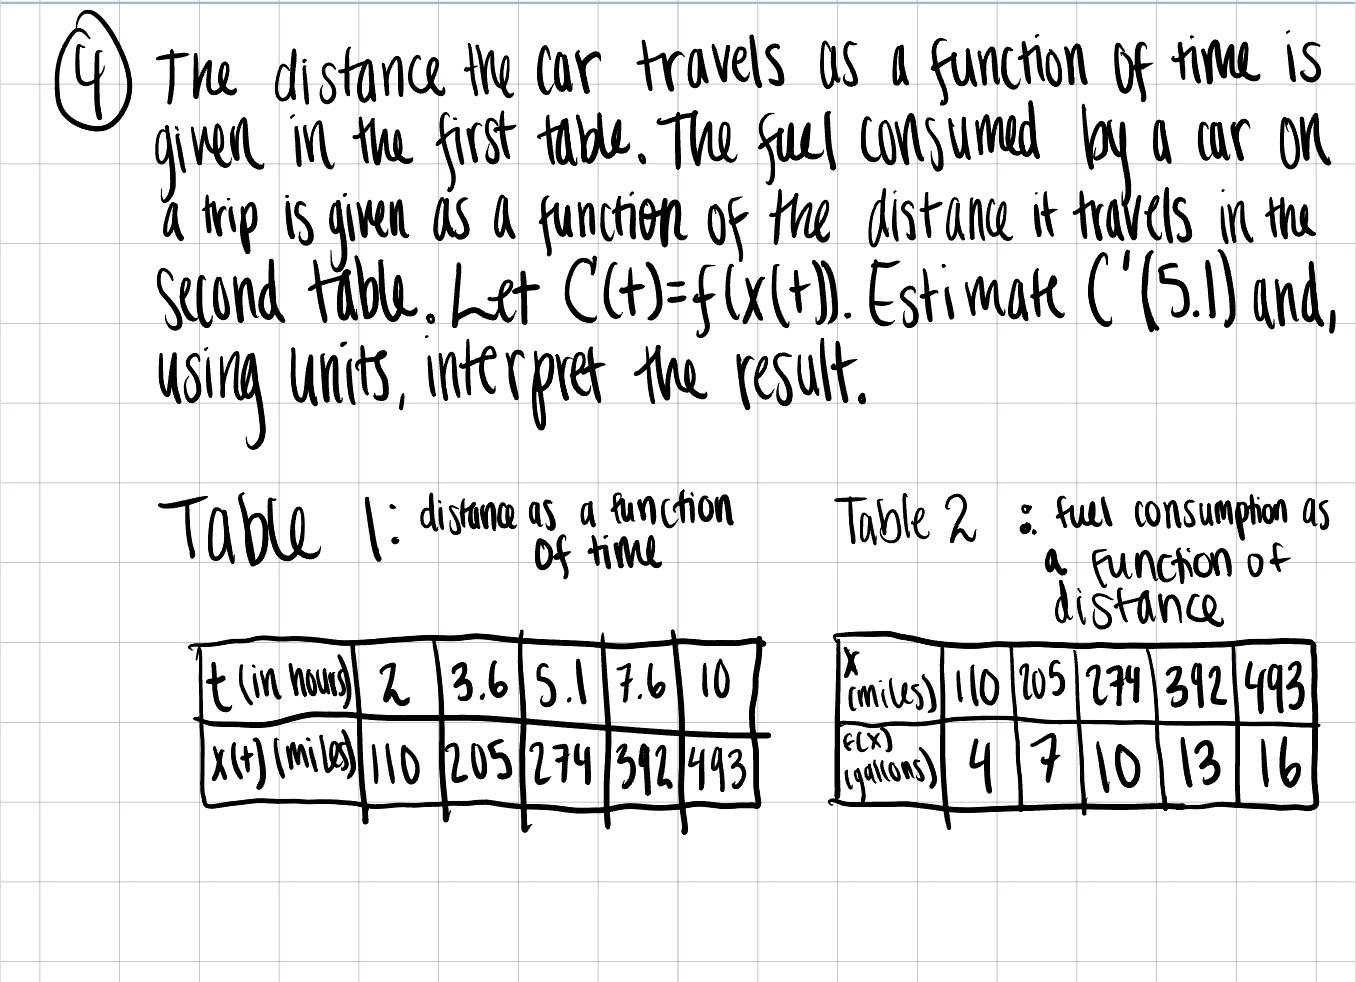 4 The distance the car travels as a function of time is
given in the first table. The fuel consumed by a car on
a trip is given as a function of the distance it travels in the
second table. Let C(t)=f(x(t)). Estimate C'(5.1) and,
using units, interpret the result.
Table 1: distance as a function
of time
t (in hours) 2 3.6 5.1 7.6 10
x(t) (miles) 110 205 274 392 493
Table 2 : fuel consumption as
a function of
distance
x (miles) 110 205 274 392 493
f(x) (gallons) 4 7 10 13 16